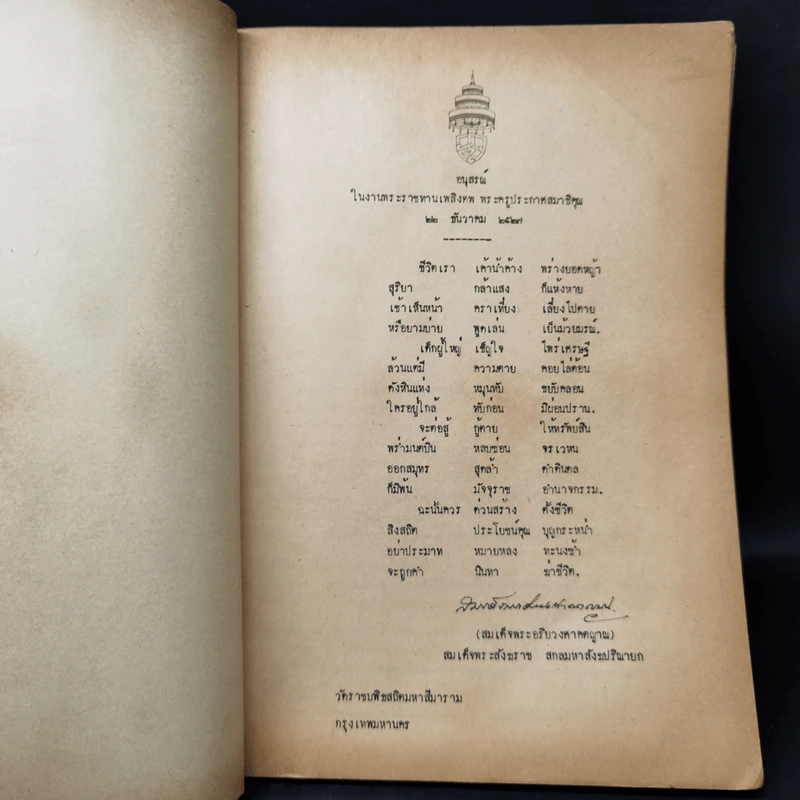 อนุสรณ์
ในงานพระราชทานเพลิงศพ พระครูประกาศสมาธิคุณ
๒๒ ธันวาคม ๒๕๒๗
ชีวิตเรา เค้าน้ำค้าง พร่างยอดหญ้า
สุริยา กล้าแสง ก็แห้งหาย
เช้าเห็นหน้า คราเที่ยง เลี่ยงไปตาย
หรือยามบ่าย พูดเล่น เย็นม้วยมรณ์.
เด็กผู้ใหญ่ เข็ญใจ ไพร่เศรษฐี
ล้วนแต่มี ความตาย คอยไล่ต้อน
ดังหินแท่ง หมุนทับ ขยับคลอน
ใครอยู่ใกล้ ทับก่อน มิผ่อนปราน.
จะต่อสู้ กู้ตาย ให้ทรัพย์สิน
พร่ำมนต์บิน หลบซ่อน จรเวหน
ออกสมุทร สุดล้ำ ดำดินดล
ก็มิพ้น มัจจุราช อำนาจกรรม.
ฉะนั้นควร ด่วนสร้าง ตั้งชีวิต
สิงสถิต ประโยชน์คุณ บุญกระหน่ำ
อย่าประมาท หมายหลง ทะนงซ้ำ
จะถูกดำ นินทา ฆ่าชีวิต.
(สมเด็จพระอริยวงศาคตญาณ)
สมเด็จพระสังฆราช สกลมหาสังฆปริณายก
วัดราชบพิธสถิตมหาสีมาราม
กรุงเทพมหานคร